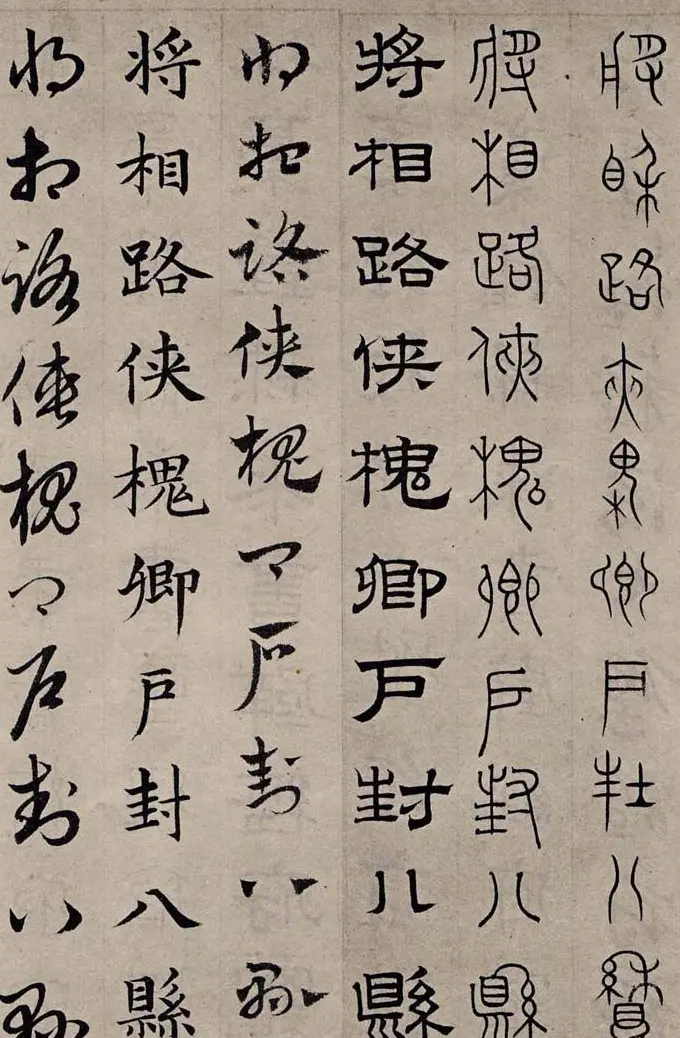 將相路俠槐卿戶封八縣
將相路俠槐卿戶封八縣
將相路侠槐卿戶封八縣
將相路侠槐卿戶封八縣
将相路侠槐卿戶封八縣
將相路俠槐卿戶封八縣